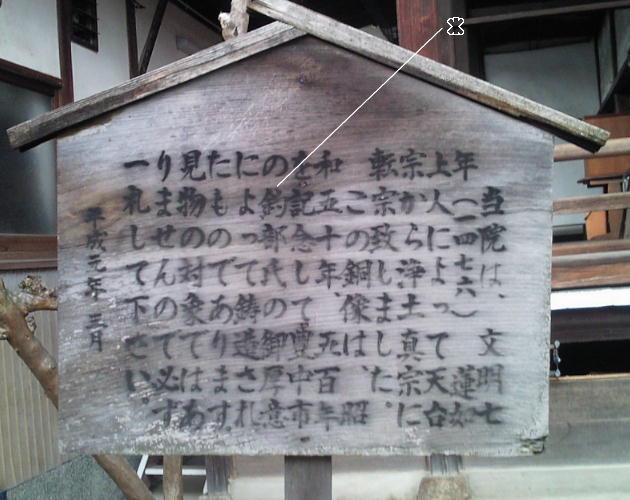 当院は、文明七
年(一四七六)蓮如
上人によって天台
宗から浄土真宗に
転宗致しました。
この銅像は、昭
和五十年死百年
を記念して豊中市
の部氏の御厚意
によって鋳造され
たものであります。
見物の対象ではあ
りませんので必ず
一礼して下さい。
平成元年 三月